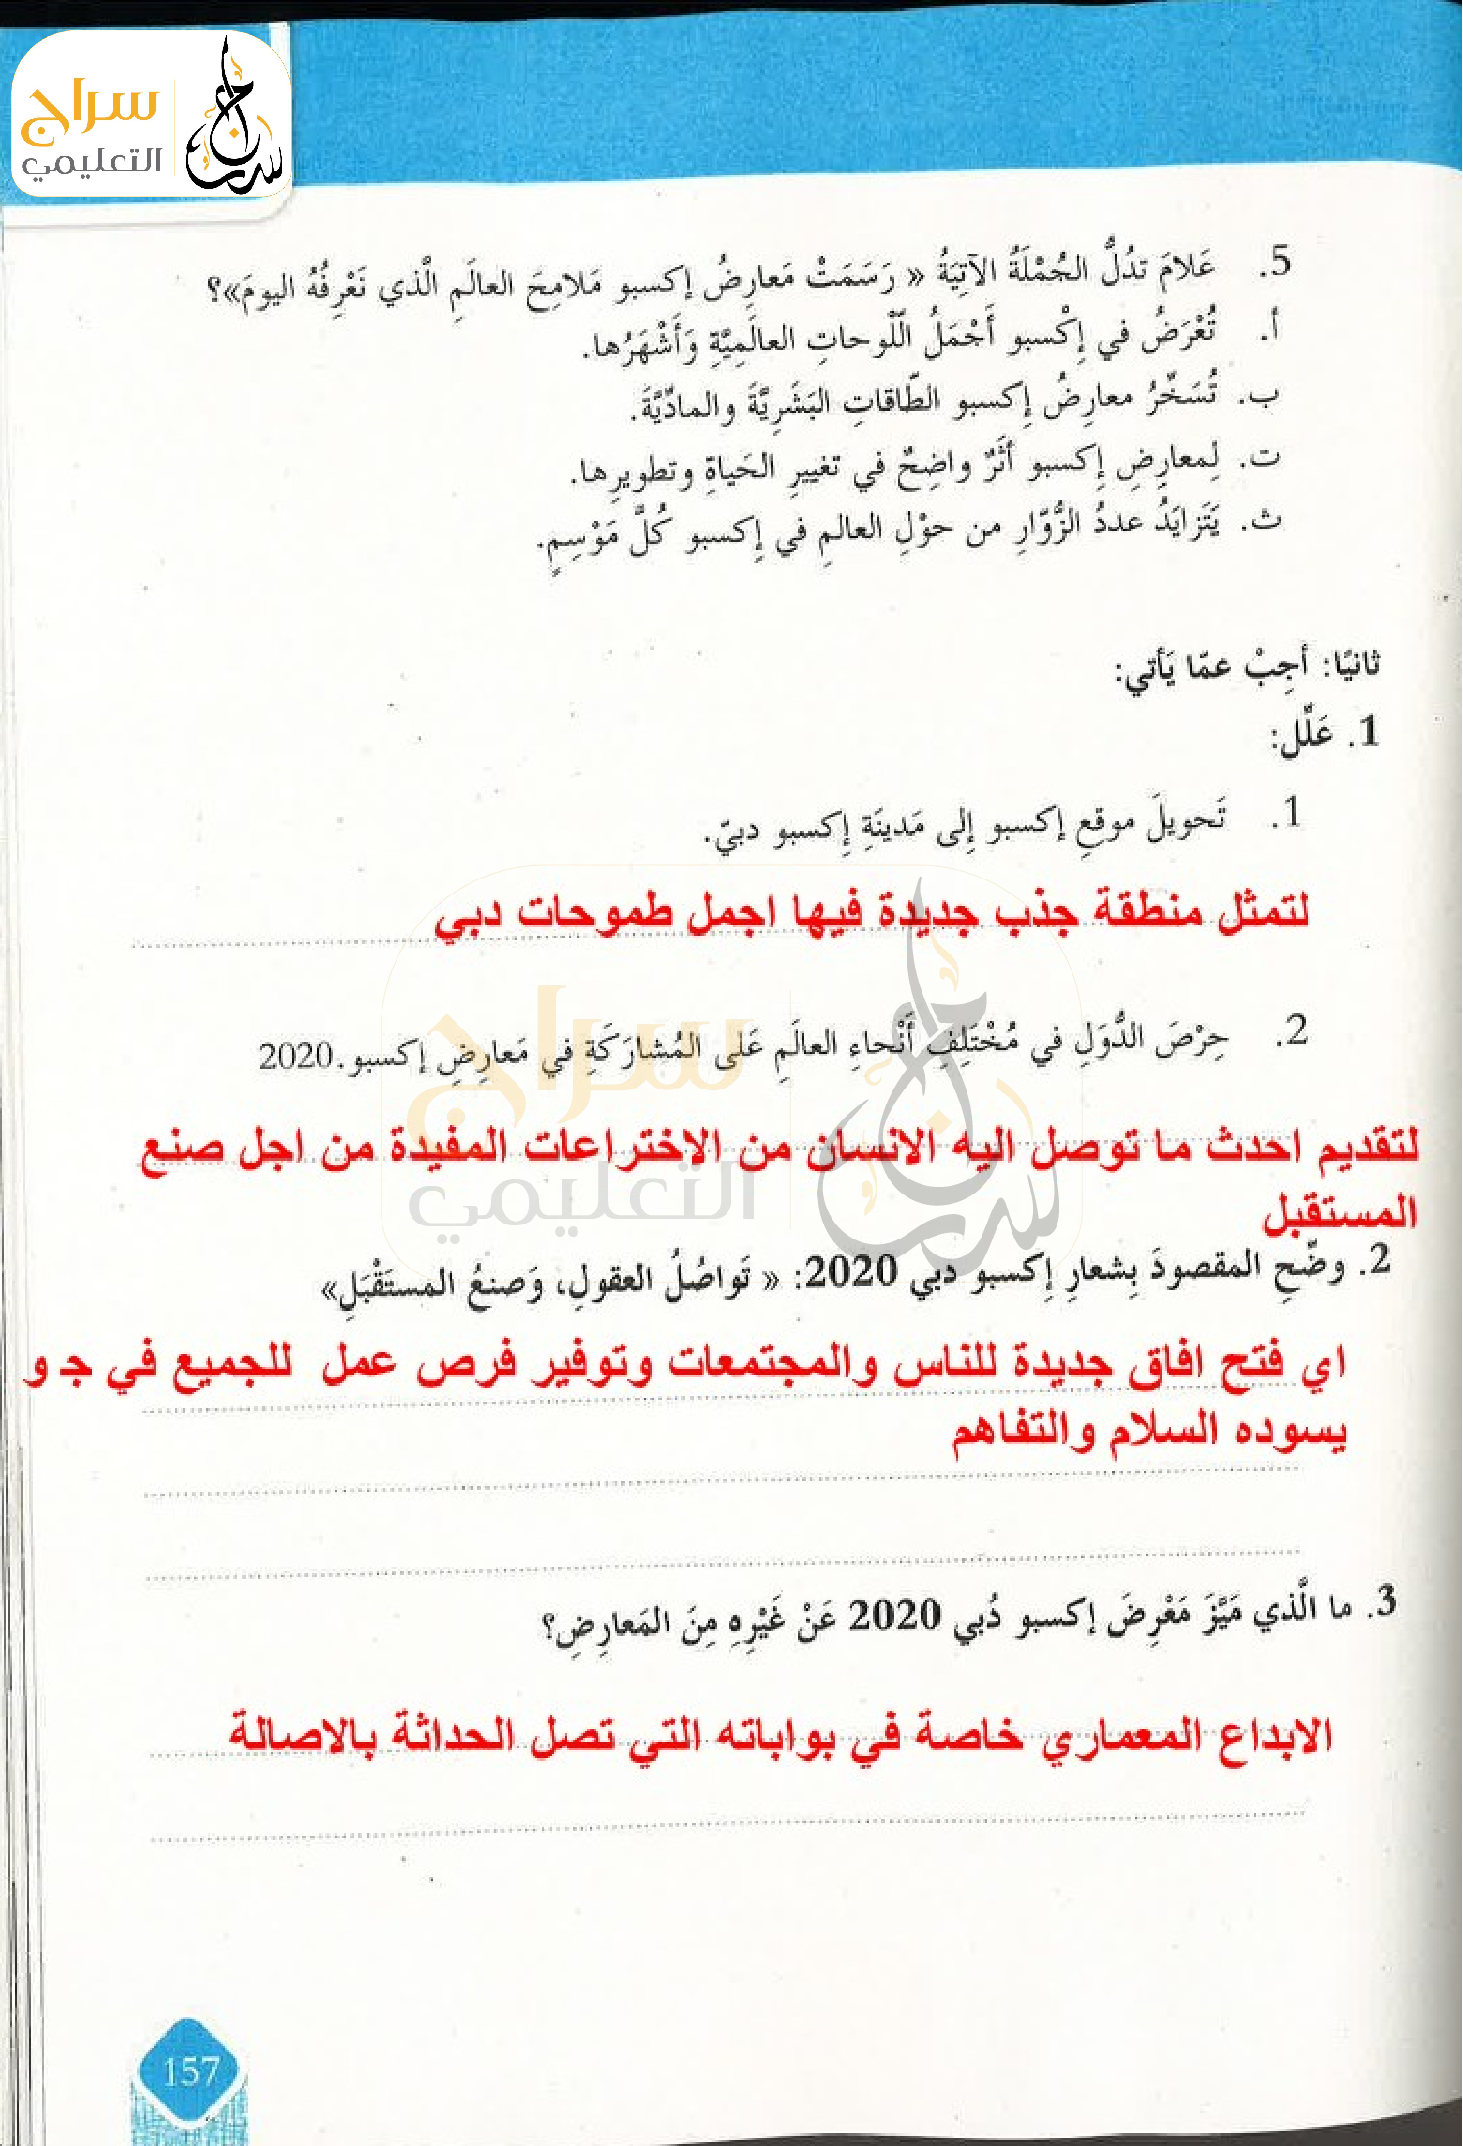 سراج
التعليمي
5. عَلامَ تدُلُّ الجُمْلَةُ الآتِيَةُ « رَسَمَتْ مَعارِضُ إكسبو مَلامِحَ العالَمِ الَّذي نَعْرِفُهُ اليومَ»؟
أ. تُعْرَضُ في إِكْسبو أَجْمَلُ اللّوحاتِ العالَمِيَّةِ وَأَشْهَرُها.
ب. تُسَخِّرُ معارِضُ إِكسبو الطّاقاتِ البَشَرِيَّةَ والمادّيَّةَ.
ت. لِمعارِضِ إِكسبو أَثَرٌ واضِحٌ في تغييرِ الحَياةِ وتطويرِها.
ث. يَتَزايَدُ عددُ الزُّوّارِ من حوْلِ العالمِ في إِكسبو كُلَّ مَوْسِمٍ.
ثانيًا: أجِبْ عمّا يَأتي:
1. عَلِّل:
1. تَحويلَ موقعِ إكسبو إلى مَدينَةِ إكسبو دبيّ.
لتمثل منطقة جذب جديدة فيها اجمل طموحات دبي
2. حِرْصَ الدُّوَلِ في مُخْتَلِفِ أَنْحاءِ العالَمِ عَلى المُشارَكَةِ في مَعارِضِ إكسبو.2020
لتقديم احدث ما توصل اليه الانسان من الاختراعات المفيدة من اجل صنع
المستقبل
2. وضِّحِ المقصودَ بِشعارِ إكسبو دبي 2020: « تَواصُلُ العقولِ، وَصنعُ المستَقْبَلِ»
اي فتح افاق جديدة للناس والمجتمعات وتوفير فرص عمل للجميع في ج و
يسوده السلام والتفاهم
3. ما الَّذي مَيَّزَ مَعْرِضَ إكسبو دُبي 2020 عَنْ غَيْرِهِ مِنَ المَعارِضِ؟
الابداع المعماري خاصة في بواباته التي تصل الحداثة بالاصالة
157